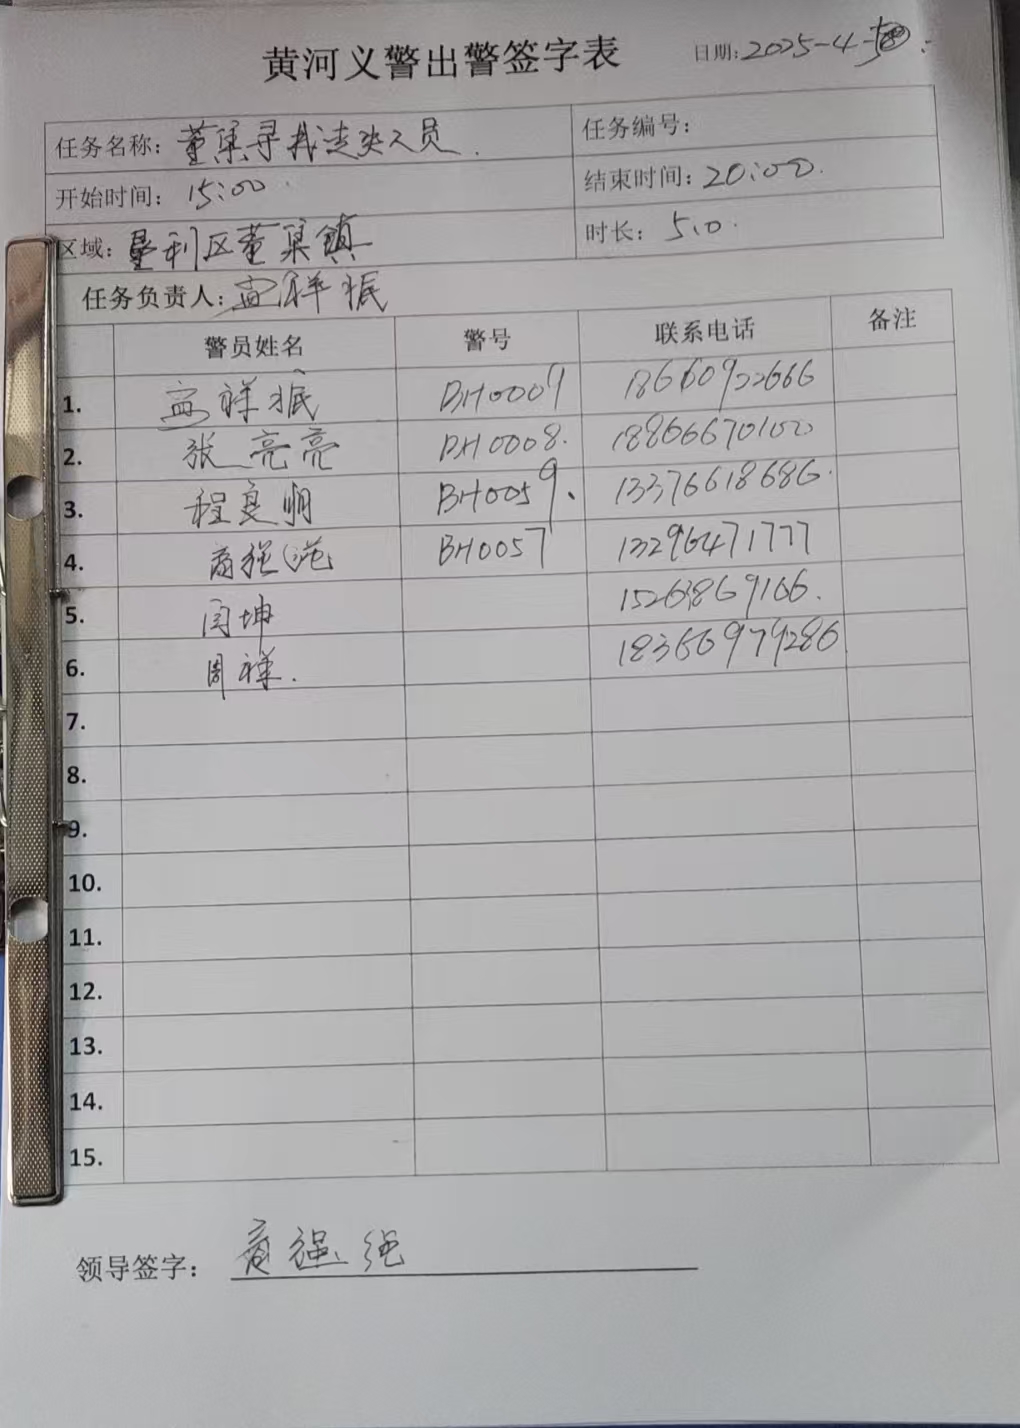 黄河义警出警签字表
日期: 2025-4-
任务名称: 董集寻找走失人员.
任务编号:
开始时间: 15:00
结束时间: 20:00.
区域: 垦利区董集镇
时长: 5.0.
任务负责人: 孟祥振
警员姓名 警号 联系电话 备注
1. 孟祥振 BH0009 18660922666
2. 张亮亮 BH0008. 18866670100
3. 程良明 BH0059. 13376618686.
4. 商强绳 BH0057 13296471777
5. 闫坤 15263869166.
6. 周祥. 18366979286
7.
8.
9.
10.
11.
12.
13.
14.
15.
领导签字: 商强绳